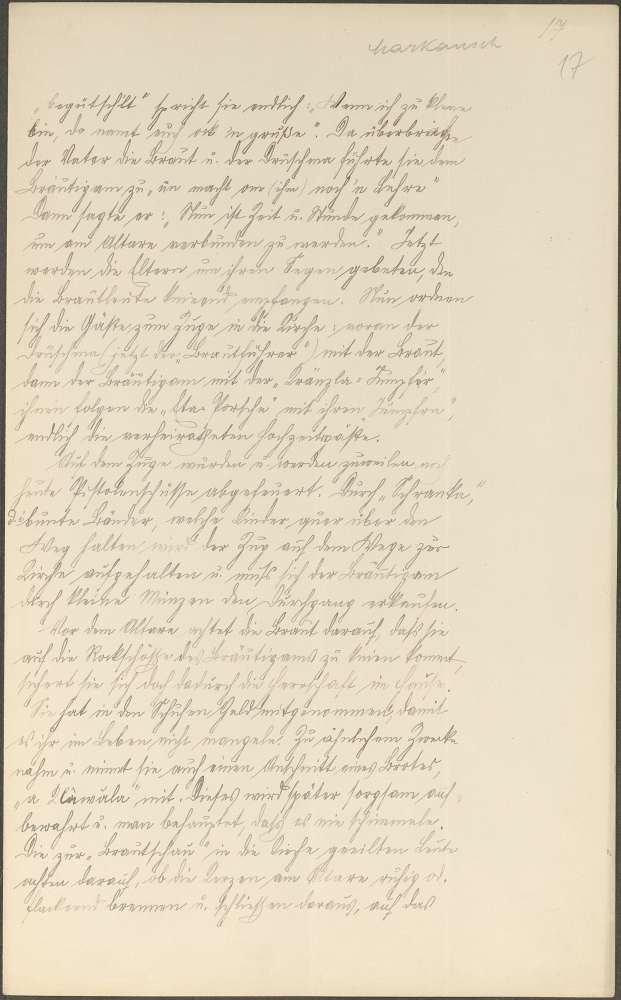 17
Markausch
17
„begutschlt“ spricht sie endlich: „Wenn ich zu kleene
bin, do namt euch ock 'n grußte“. Da überbringt
der Vater die Braut u. der Druschma führte sie dem
Bräutigam zu, „un macht om (ihm) noch 'n Lehre“
Dann sagte er: „Nun ist Zeit u. Stunde gekommen,
um am Altare verbunden zu werden.“ Jetzt
werden die Eltern um ihren Segen gebeten, den
die Brautleute knieend empfangen. Nun ordnen
sich die Gäste zum Zuge in die Kirche: voran der
Druschma (jetzt der „Brautführer“) mit der Braut,
dann der Bräutigam mit der „Kränzla-Jumpfer“,
ihnen folgen die mit ihren „Jumpfon“,
endlich die verheiratheten Hochzeitgäste.
Auf dem Zuge wurden u. werden zuweilen noch
heute Pistolenschüsse abgefeuert. Durch „Schranka“,
d.i. bunte Bänder, welche Kinder quer über den
Weg halten, wird der Zug auf dem Wege zur
Kirche aufgehalten u. muß sich der Bräutigam
durch kleine Münzen den Durchgang erkaufen.
Vor dem Altare achtet die Braut darauf, daß sie
auf die Rockschöße des Bräutigams zu knien kommt,
sichert sie sich doch dadurch die Herrschaft im Hause.
Sie hat in den Schuhen Geld mitgenommen, damit
es ihr im Leben nicht mangele. Zu ähnlichem Zwecke
nahm u. nimmt sie auch einen Anschnitt eines Brotes,
„a mit. Dieses wird später sorgsam auf-
bewahrt u. man behauptet, daß es nie schimmele.
Die zur „Brautschau“ in die Kirche geeilten Leute
achten darauf, ob die Kerzen am Altare ruhig od.
flackernd brennen u. schließen daraus, auf das